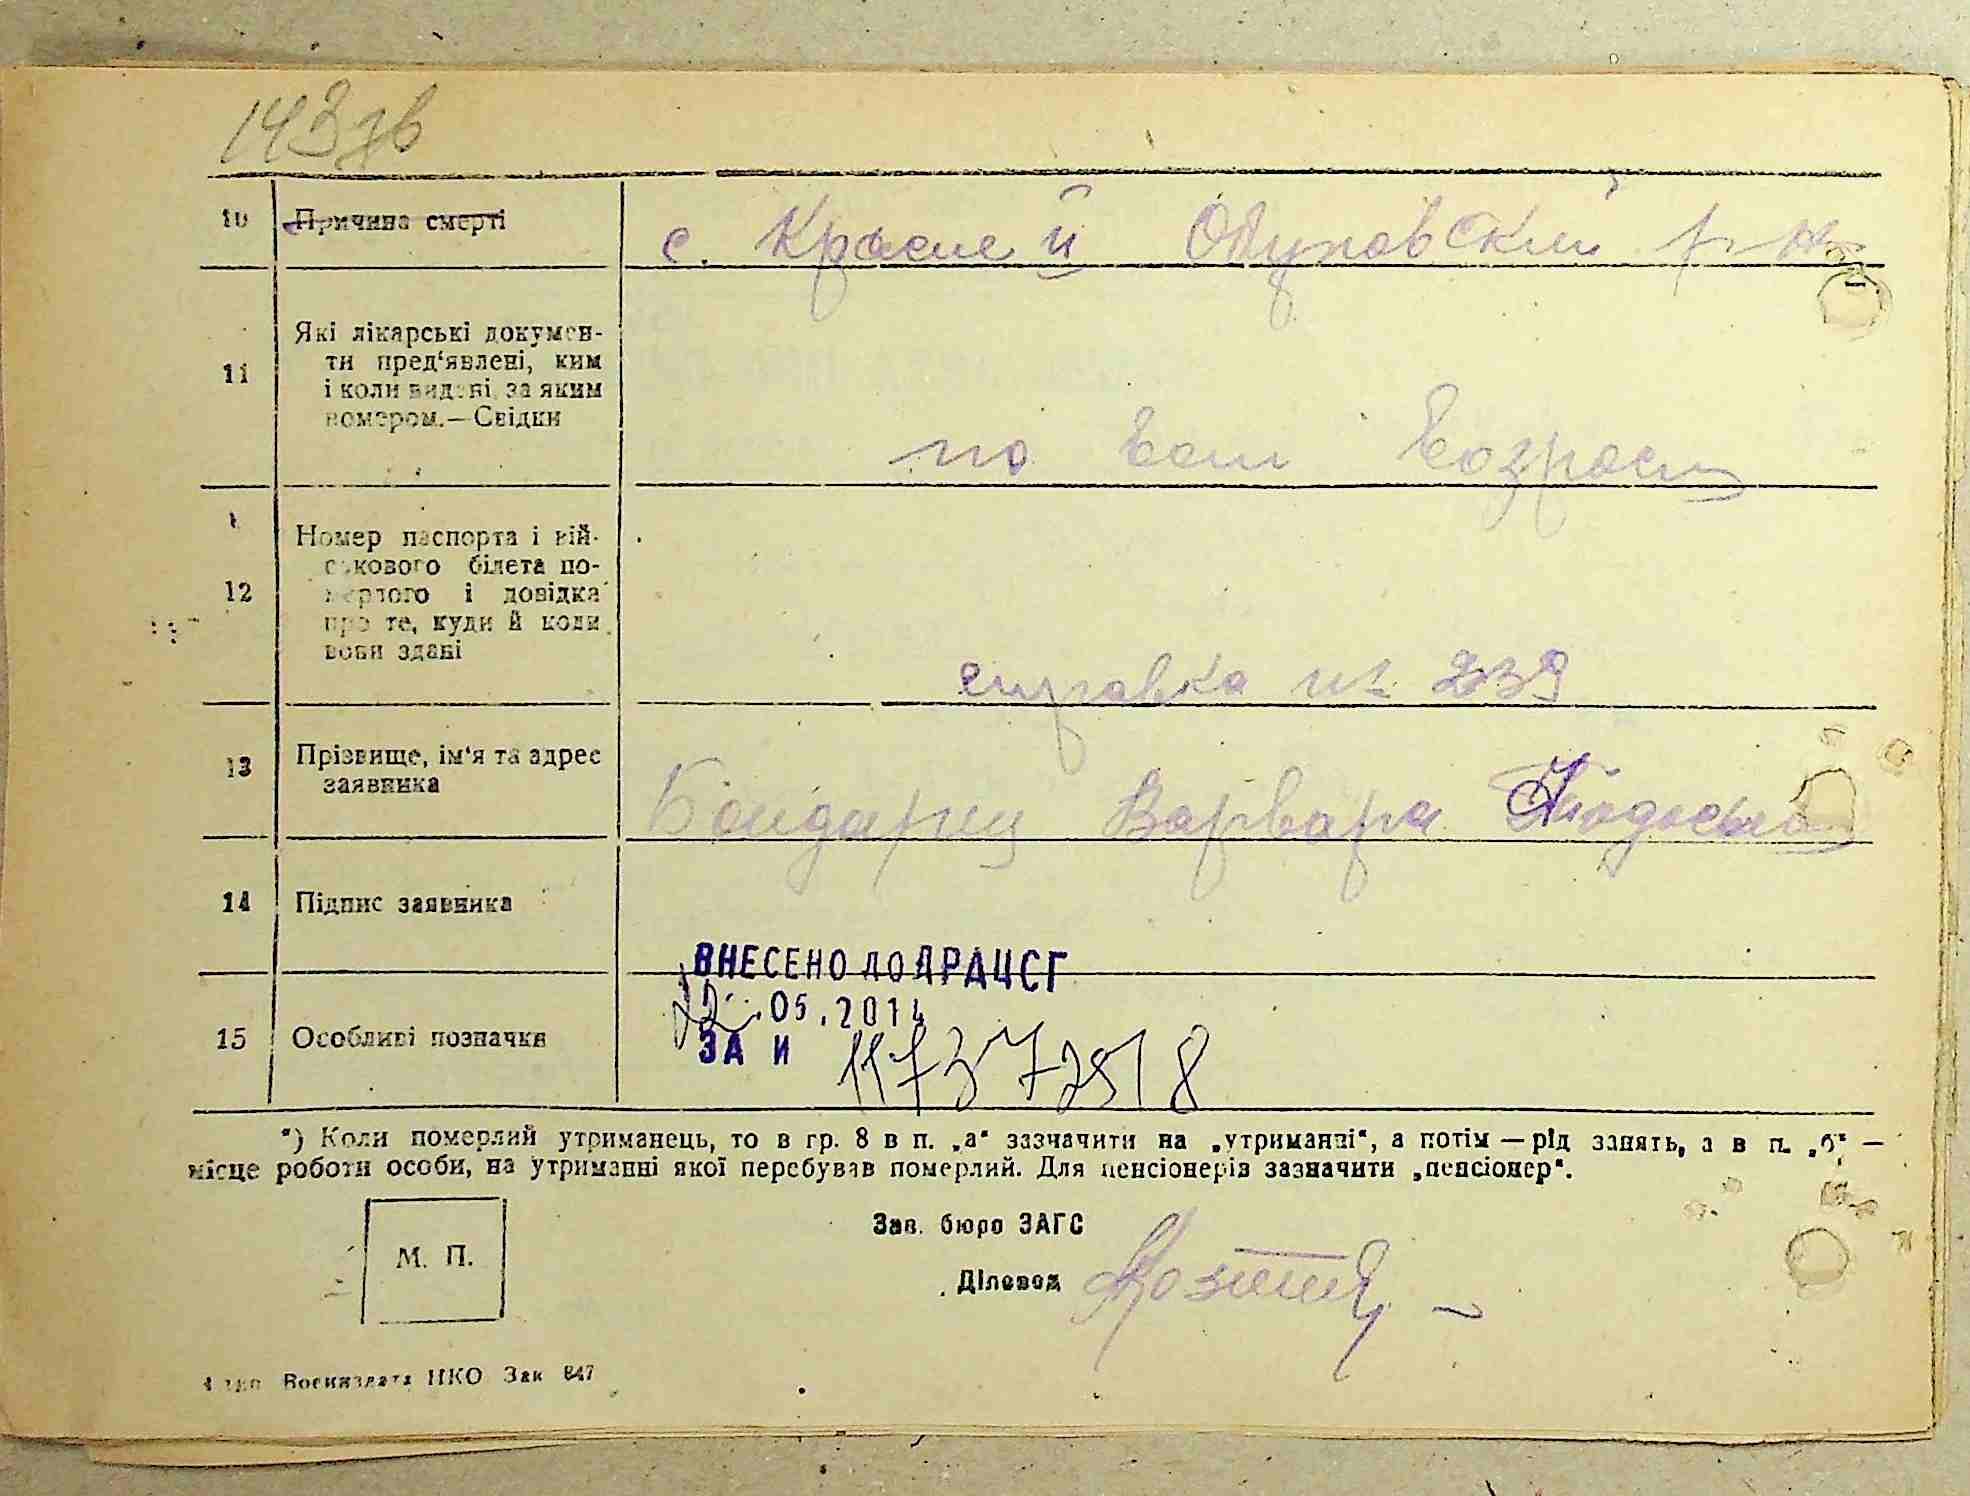 143 зв
10 Причина смерті
с. Красне й Обуховский р-н
11 Які лікарські докумен-
ти пред'явлені, ким
і коли видані, за яким
номером.—Свідки
по возраст
12 Номер паспорта і вій-
ськового білета по-
мерлого і довідка
про те, куди й коли
вони здані
справка № 239
13 Прізвище, ім'я та адрес
заявника
Бондарец Варвара
14 Підпис заявника
ВНЕСЕНО ДО ДРАЦСГ
.05.2014
15 Особливі позначки
ЗА И 11737251 8
*) Коли померлий утриманець, то в гр. 8 в п. „а“ зазначити на „утриманні“, а потім — рід занять, а в п. „б“ —
місце роботи особи, на утриманні якої перебував померлий. Для пенсіонерів зазначити „пенсіонер“.
М. П.
Зав. бюро ЗАГС
Діловод
4 тип Воениздата НКО Зак 847